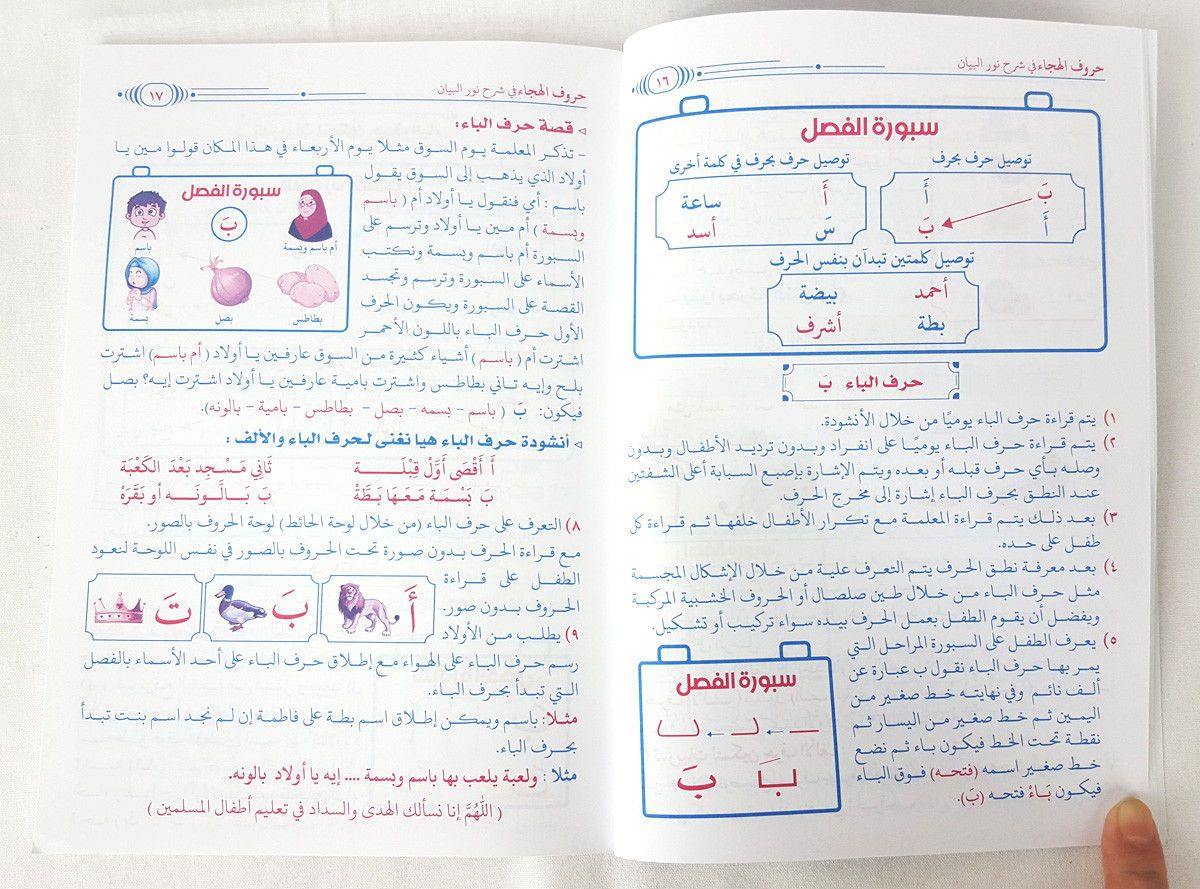 حروف الهجاء في شرح نور البيان
١٦
سبورة الفصل
توصيل حرف بحرف
توصيل حرف بحرف في كلمة أخرى
بَ أَ
أَ بَ
أَ ساعة
سَ أسد
توصيل كلمتين تبدآن بنفس الحرف
أحمد بيضة
بطة أشرف
حرف الباء بَ
١) يتم قراءة حرف الباء يوميًا من خلال الأنشودة.
٢) يتم قراءة حرف الباء يوميًا على انفراد وبدون ترديد الأطفال وبدون
وصله بأي حرف قبله أو بعده ويتم الإشارة بإصبع السبابة أعلى الشفتين
عند النطق بحرف الباء إشارة إلى مخرج الحرف.
٣) بعد ذلك يتم قراءة المعلمة مع تكرار الأطفال خلفها ثم قراءة كل
طفل على حده.
٤) بعد معرفة نطق الحرف يتم التعرف علية من خلال الإشكال المجسمة
مثل حرف الباء من خلال طين صلصال أو الحروف الخشبية المركبة
ويفضل أن يقوم الطفل بعمل الحرف بيده سواء تركيب أو تشكيل.
٥) يعرف الطفل على السبورة المراحل التي
يمر بها حرف الباء نقول ب عبارة عن
ألف نائم وفي نهايته خط صغير من
اليمين ثم خط صغير من اليسار ثم
نقطة تحت الخط فيكون باء ثم نضع
خط صغير اسمه (فتحه) فوق الباء
فيكون بَاءْ فتحه (بَ).
سبورة الفصل
بَ
حروف الهجاء في شرح نور البيان
١٧
قصة حرف الباء:
- تذكر المعلمة يوم السوق مثلا يوم الأربعاء في هذا المكان قولوا مين يا
أولاد الذي يذهب إلى السوق يقول
باسم : أمي فنقول يا أولاد أم ( باسم
وبسمة ) أم مين يا أولاد وترسم على
السبورة أم باسم وبسمة ونكتب
الأسماء على السبورة وترسم وتجسد
القصة على السبورة ويكون الحرف
الأول حرف الباء باللون الأحمر
سبورة الفصل
بَ
باسم
أم باسم وبسمة
بسمة
بصل
بطاطس
اشترت أم ( باسم) أشياء كثيرة من السوق عارفين يا أولاد ( أم باسم) اشترت
بلح وإيه تاني بطاطس واشترت بامية عارفين يا أولاد اشترت إيه؟ بصل
فيكون: بَ ( باسم - بسمه - بصل - بطاطس - بامية - بالونه).
أنشودة حرف الباء هيا نغنى لحرف الباء والألف :
أَ أَقْصَى أَوَّل قِبْلَـــة ثَانِي مَسْجِد بَعْدَ الكَعْبَة
بَ بَسْمَة مَعَهَا بَطَّة بَ بَـالُّونَـه أو بَقَرَة
٨) التعرف على حرف الباء (من خلال لوحة الحائط) لوحة الحروف بالصور.
مع قراءة الحرف بدون صورة تحت الحروف بالصور في نفس اللوحة لنعود
الطفل على قراءة
الحروف بدون صور.
أَ
بَ
تَ
٩) يطلب من الأولاد
رسم حرف الباء على الهواء مع إطلاق حرف الباء على أحد الأسماء بالفصل
التي تبدأ بحرف الباء.
مثلا: باسم ويمكن إطلاق اسم بطة على فاطمة إن لم نجد اسم بنت تبدأ
بحرف الباء.
مثلا : ولعبة يلعب بها باسم وبسمة .... إيه يا أولاد بالونه.
( اللهُمَّ إنا نسألك الهدى والسداد في تعليم أطفال المسلمين )